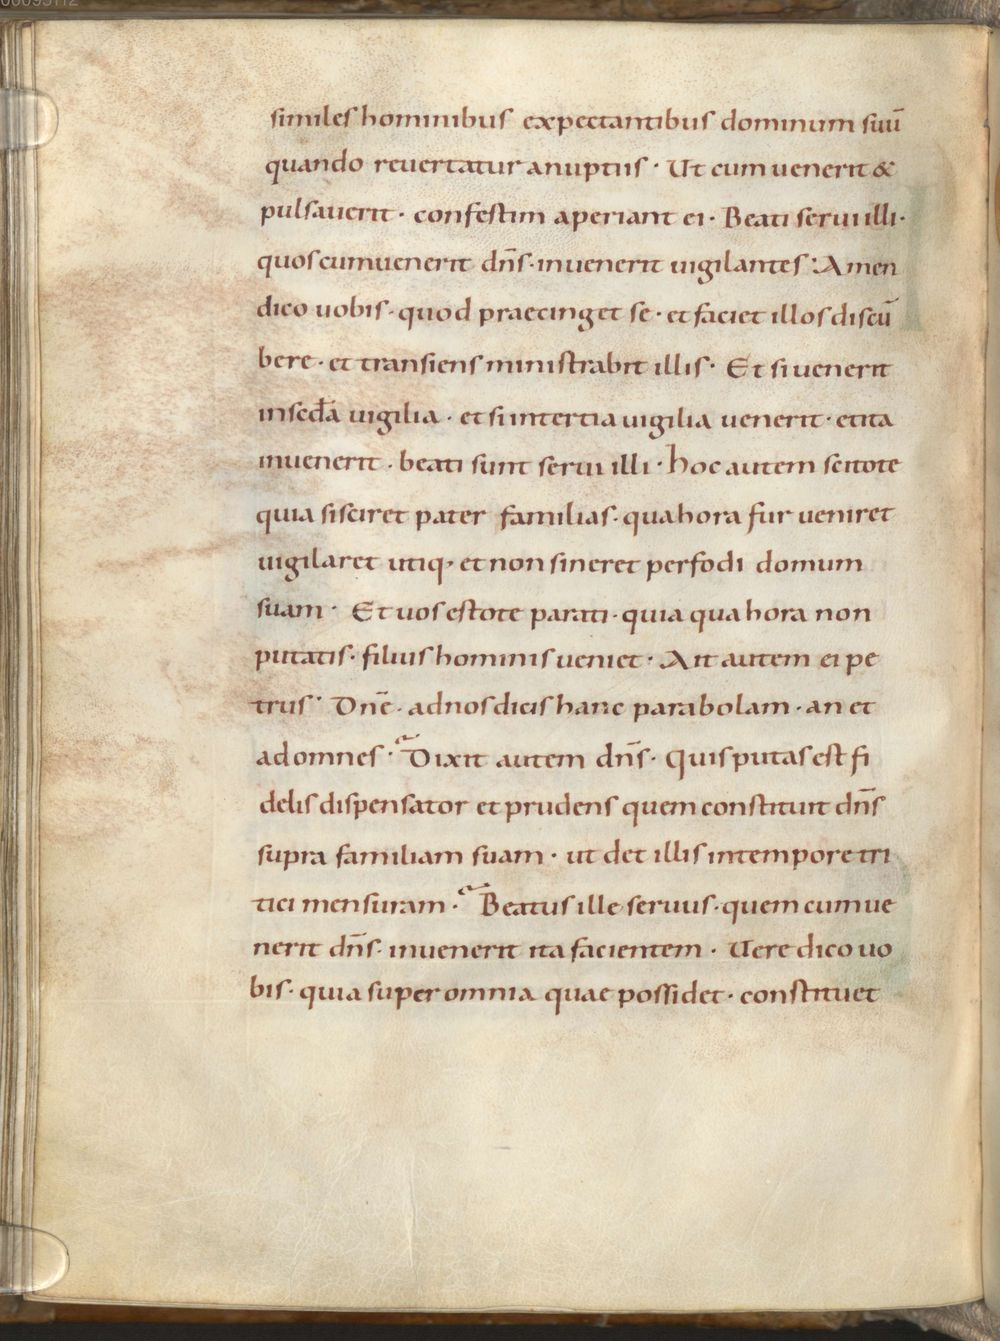 similes hominibus expectantibus dominum suū
quando revertatur a nuptiis · Ut cum venerit &
pulsaverit · confestim aperiant ei · Beati servi illi ·
quos cum venerit dn̄s · invenerit vigilantes · Amen
dico vobis · quod praecinget se · et faciet illos discū
bere · et transiens ministrabit illis · Et si venerit
in scd̄a vigilia · et si in tertia vigilia venerit · et ita
invenerit · beati sunt servi illi · hoc autem scitote
quia si sciret pater familias · qua hora fur veniret
vigilaret utiq, et non sineret perfodi domum
suam · Et vos estote parati · quia qua hora non
putatis · filius hominis veniet · Ait autem ei pe
trus · Dn̄e · ad nos dicis hanc parabolam · an et
ad omnes · Dixit autem dn̄s · Quis putas est fi
delis dispensator et prudens quem constituit dn̄s
supra familiam suam · ut det illis in tempore tri
tici mensuram · Beatus ille servus · quem cum ve
nerit dn̄s · invenerit ita facientem · Vere dico vo
bis · quia super omnia quae possidet · constituet